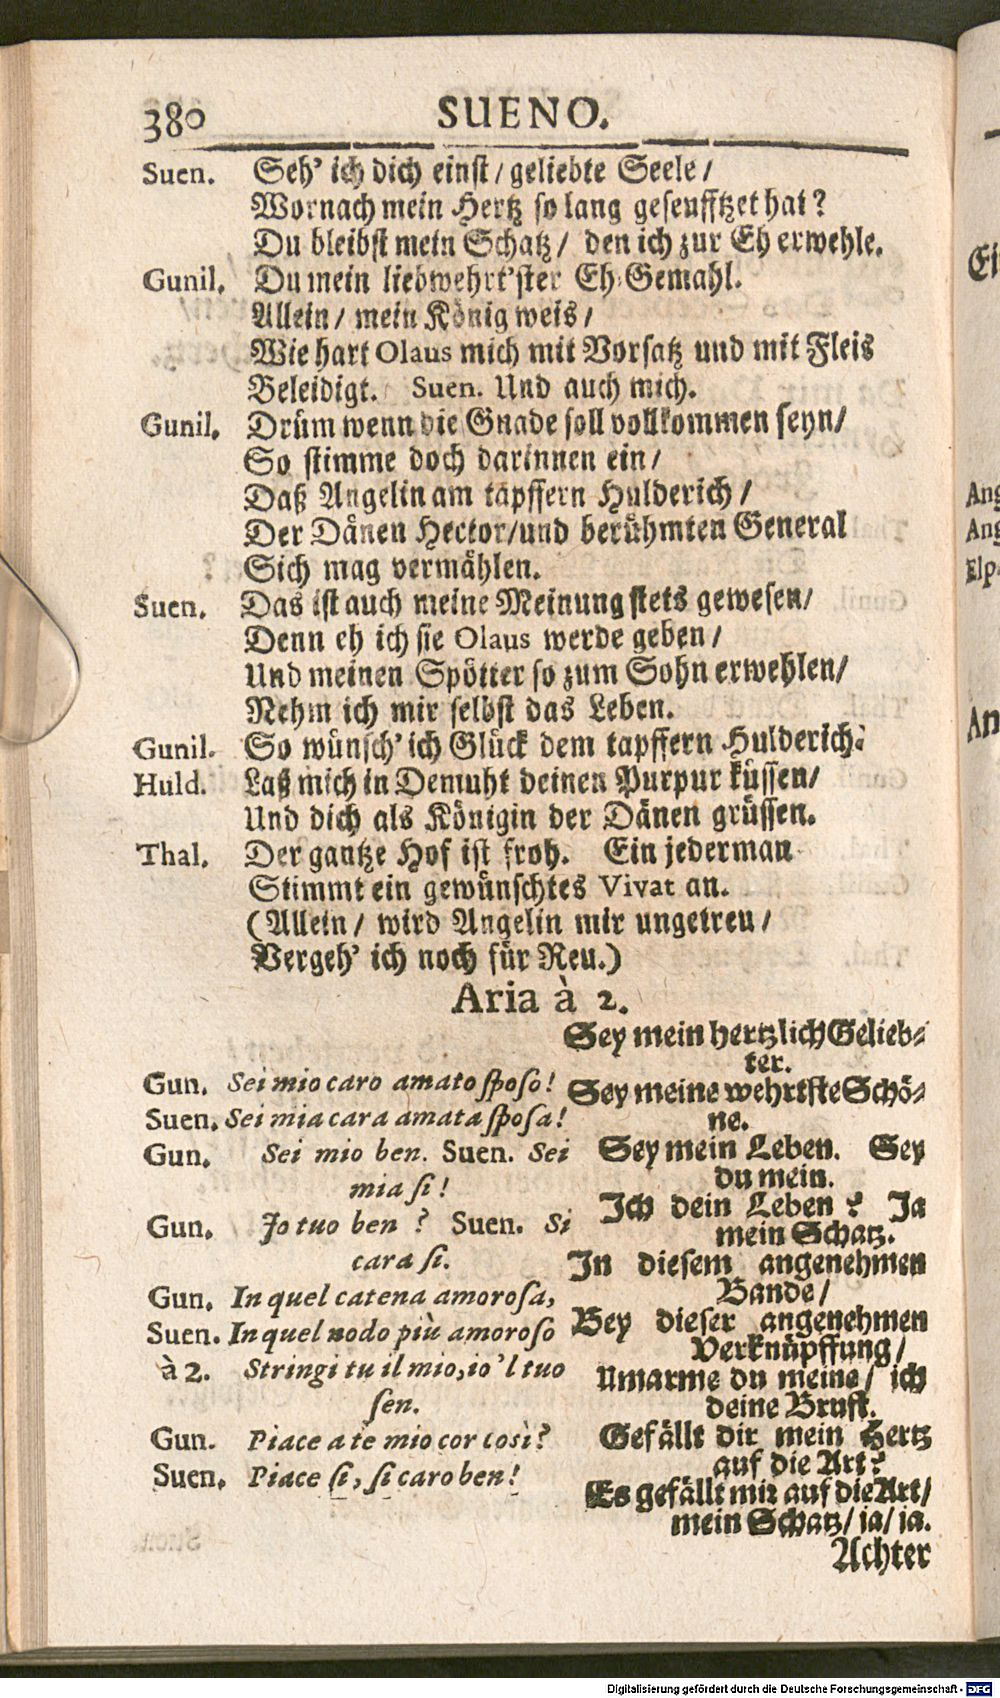 380 SUENO.
Suen. Seh' ich dich einst / geliebte Seele /
Wornach mein Hertz so lang geseufftzet hat?
Du bleibst mein Schatz / den ich zur Eh erwehle.
Gunil. Du mein liebwehrt'ster Eh-Gemahl.
Allein / mein König weis /
Wie hart Olaus mich mit Vorsatz und mit Fleis
Beleidigt. Suen. Und auch mich.
Gunil. Drüm wenn die Gnade soll vollkommen seyn /
So stimme doch darinnen ein /
Daß Angelin am tapffern Hulderich /
Der Dänen Hector / und berühmten General
Sich mag vermählen.
Suen. Das ist auch meine Meinung stets gewesen /
Denn eh ich sie Olaus werde geben /
Und meinen Spötter so zum Sohn erwehlen /
Nehm ich mir selbst das Leben.
Gunil. So wünsch' ich Glück dem tapffern Hulderich.
Huld. Laß mich in Demuht deinen Purpur küssen /
Und dich als Königin der Dänen grüssen.
Thal. Der gantze Hof ist froh. Ein jederman
Stimmt ein gewünschtes Vivat an.
(Allein / wird Angelin mir ungetreu /
Vergeh' ich noch für Reu.)
Aria à 2.
Gun. Sei mio caro amato sposo!
Suen. Sei mia cara amata sposa!
Gun. Sei mio ben. Suen. Sei
mia si!
Gun. Jo tuo ben? Suen. Si
cara si.
Gun. In quel catena amorosa,
Suen. In quel nodo più amoroso
à 2. Stringi tu il mio, io 'l tuo
sen.
Gun. Piace a te mio cor così?
Suen. Piace si, si caro ben!
Sey mein hertzlich Gelieb-
ter.
Sey meine wehrtste Schö-
ne.
Sey mein Leben. Sey
du mein.
Ich dein Leben? Ja
mein Schatz.
In diesem angenehmen
Bande /
Bey dieser angenehmen
Verknüpffung /
Umarme du meine / ich
deine Brust.
Gefällt dir mein Hertz
auf die Art?
Es gefällt mir auf die Art /
mein Schatz / ja / ja.
Achter
Ei
Ang
Ang
Elp
An
Digitalisierung gefördert durch die Deutsche Forschungsgemeinschaft - DFG